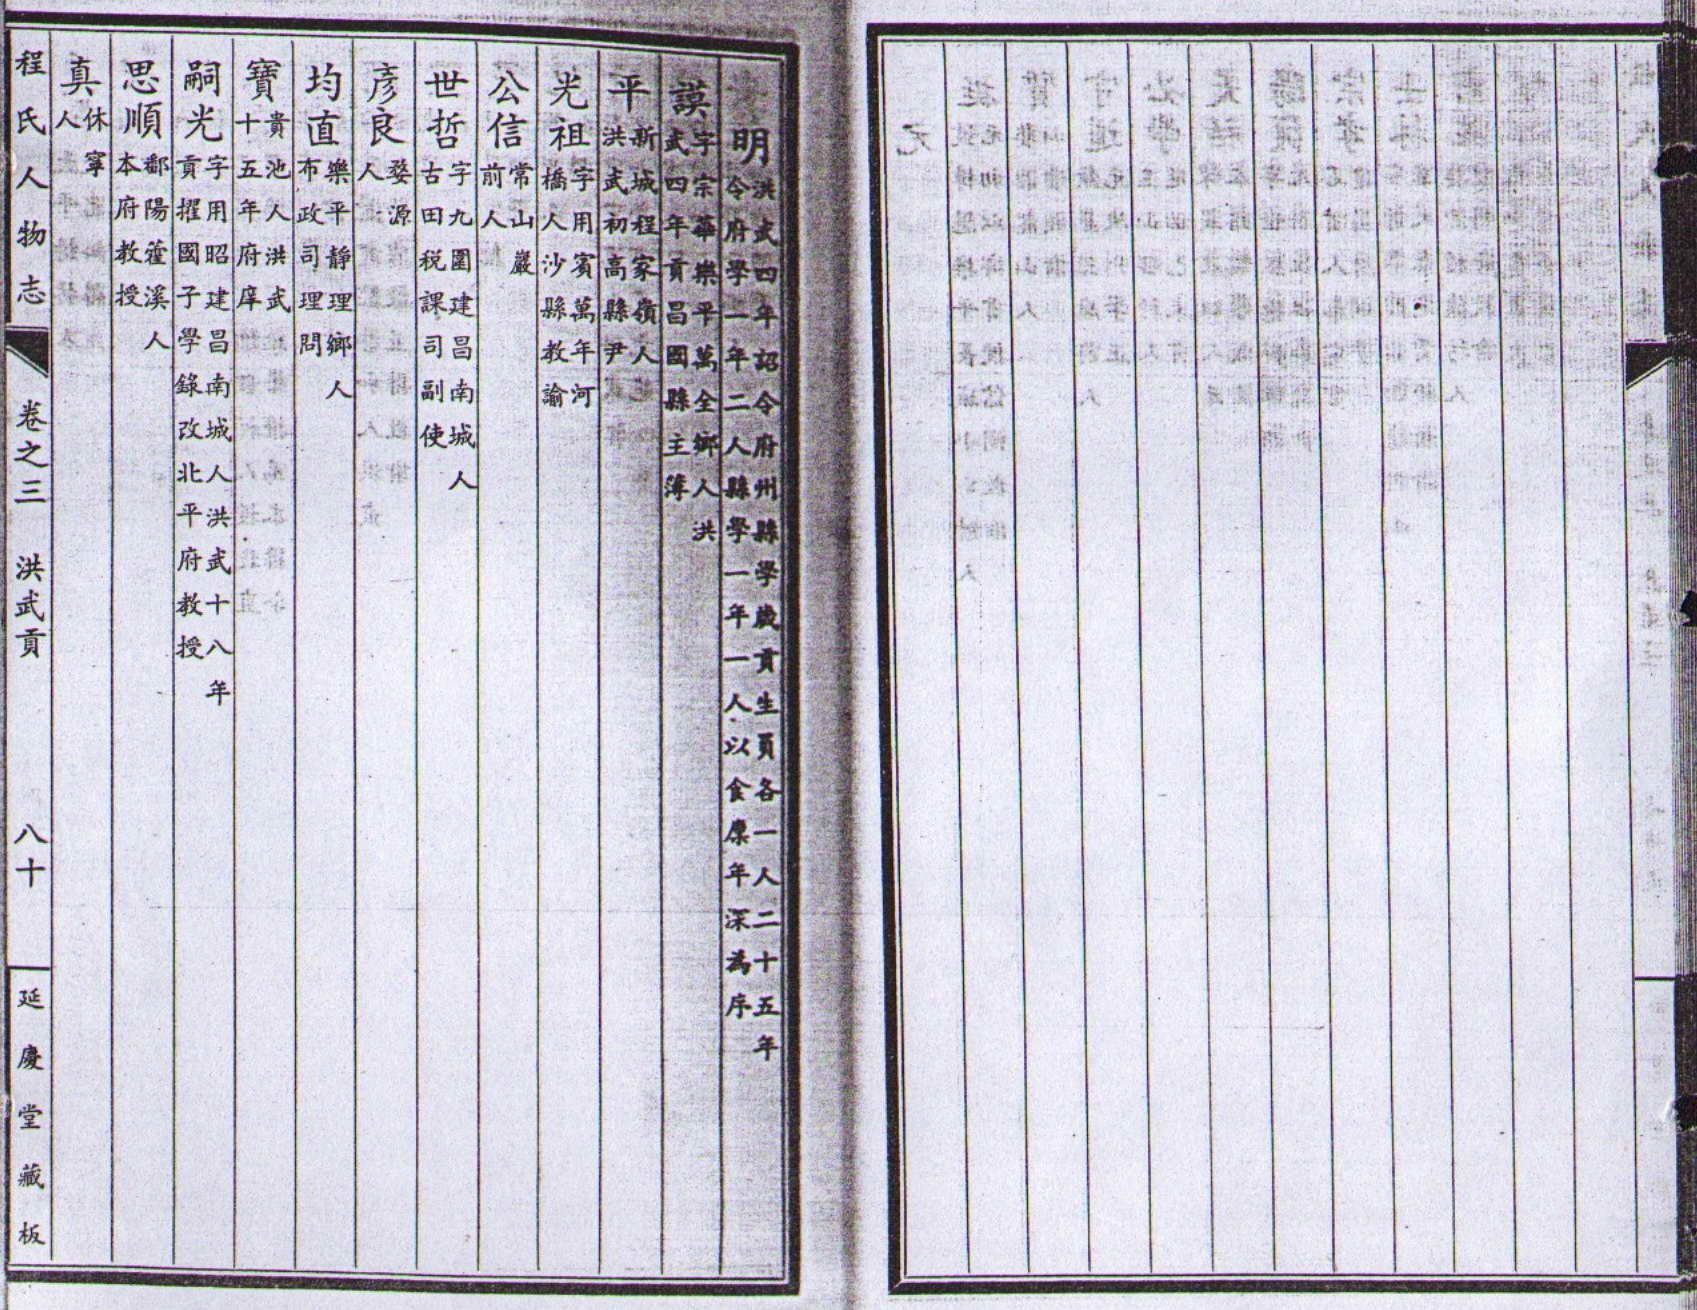 明洪武四年詔令府州縣學歲貢生員各一人二十五年
令府學一年二人縣學一年一人以食廩年深為序
謨字宗華樂平萬全鄉人洪
武四年貢昌國縣主簿
平新城程家嶺人
洪武初高縣尹
光祖字用賓萬年河
橋人沙縣教諭
公信常山巖
前人
世哲字九圍建昌南城人
古田税課司副使
彥良婺源
人
均直樂平靜理鄉人
布政司理問
寶貴池人洪武
十五年府庠
嗣光字用昭建昌南城人洪武十八年
貢擢國子學錄改北平府教授
思順鄱陽藿溪人
本府教授
真休寧
人
程氏人物志 卷之三 洪武貢 八十 延慶堂藏板